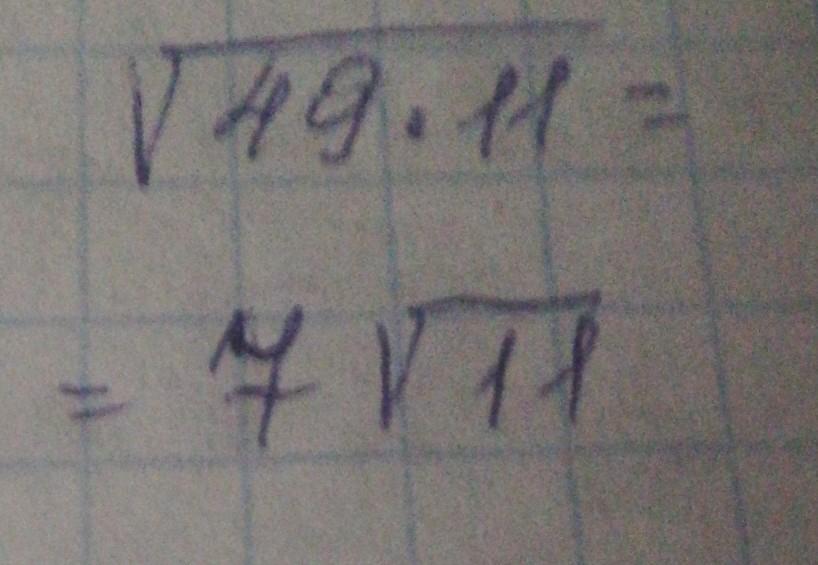 √49·11 =
= 7√11